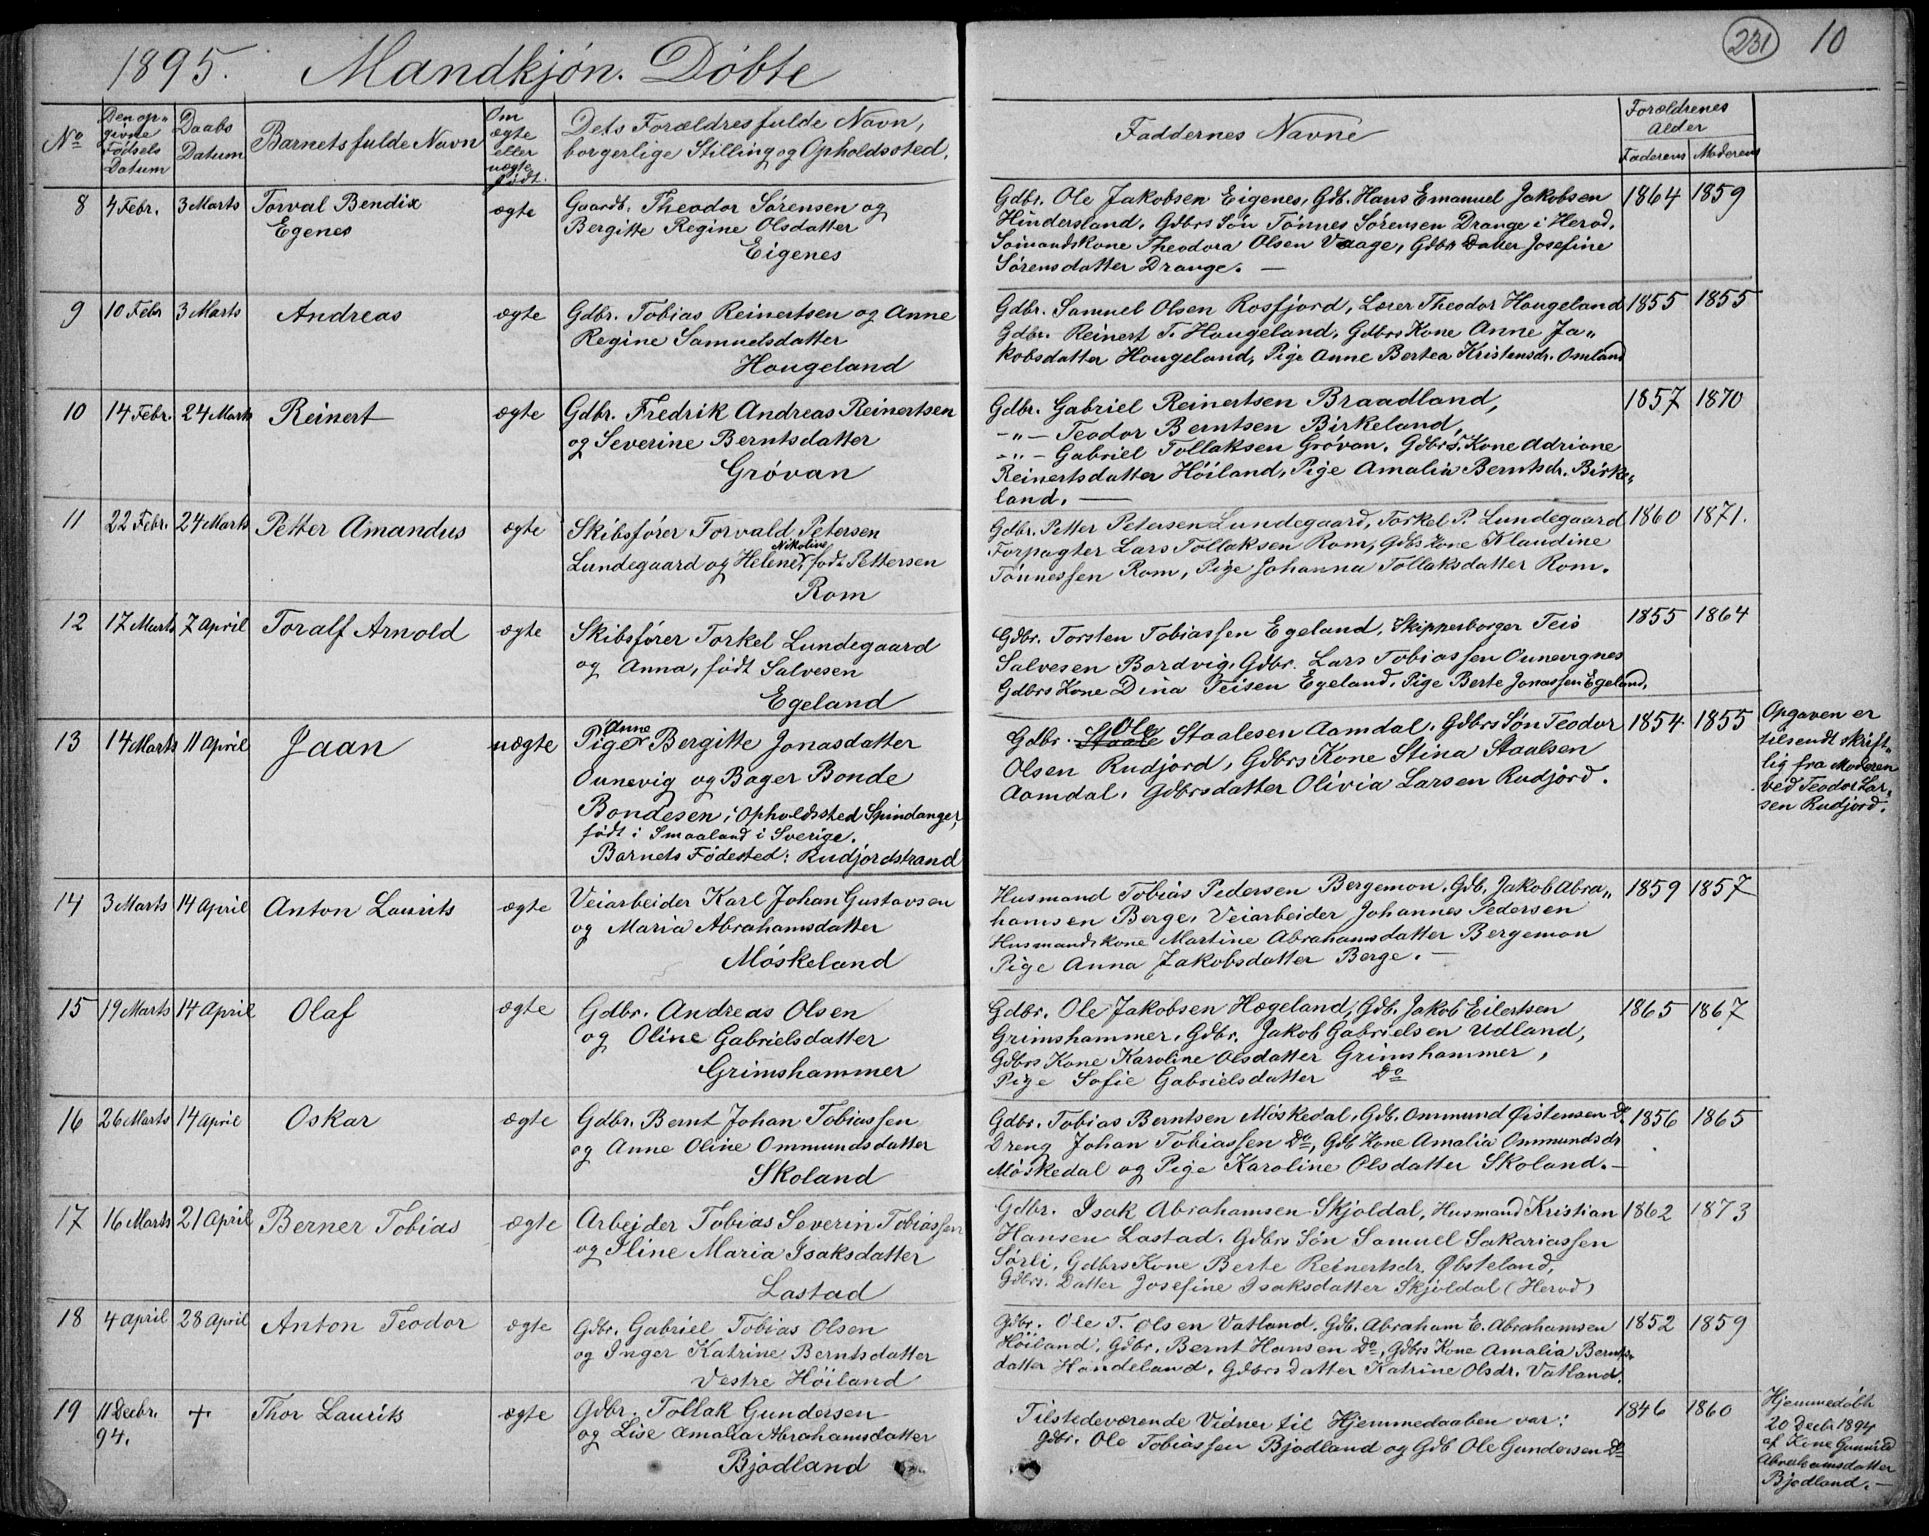 1895. Mandkjøn. Døbte
231 10
No
Den op-
givne
Fødsels
Datum
Daabs
Datum
Barnets fulde Navn
Om
ægte
eller
uægte
født.
Dets Forældres fulde Navn,
borgerlige Stilling og Opholdssted.
Faddernes Navne
Forældrenes
Alder
Faderens Moderens
8 4 Febr. 3 Marts Torval Bendix
Egenes
ægte
Gaardb. Theodor Sørensen og
Bergitte Regine Olsdatter
Eigenes
Gdbr. Ole Jakobsen Eigenes, Gdb. Hans Emanuel Jakobsen
Hindersland, Gdbrs Søn Tønnes Sørensen Drange i Herod,
Sømandskone Theodora Olsen Vaage, Gdbrs Datter Josefine
Sørensdatter Drange. —
1864 1859
9 10 Febr 3 Marts Andreas ægte
Gdbr. Tobias Reinertsen og Anne
Regine Samuelsdatter
Hougeland
Gdbr. Samuel Olsen Rosfjord, Lærer Theodor Hougeland
Gdbr. Reinert T. Hougeland, Gdbrs Kone Anne Ja„
kobsdatter Hougeland, Pige Anne Bertea Kristensdr. Omland
1855 1855
10 14 Febr. 24 Marts Reinert ægte
Gdbr. Fredrik Andreas Reinertsen
og Severine Berntsdatter
Grøvan
Gdbr. Gabriel Reinertsen Braadland,
-„- Teodor Berntsen Birkeland,
-„- Gabriel Tollaksen Grøvan, Gdbrs Kone Adriane
Reinertsdatter Høiland, Pige Amalia Berntsdr. Birke„
land. —
1857 1870
11 22 Febr. 24 Marts Petter Amandus ægte
Skibsfører Torvald Petersen
Lundegaard og Helene Nikoline, født Pettersen
Rom
Gdbr. Petter Petersen Lundegaard, Torkel P. Lundegaard
Forpagter Lars Tollaksen Rom, Gdbs Kone Klaudine
Tønnessen Rom, Pige Johanna Tollaksdatter Rom.
1860 1871.
12 17 Marts 7 April Toralf Arnold ægte
Skibsfører Torkel Lundegaard
og Anna, født Salvesen
Egeland
Gdbr. Torsten Tobiassen Egeland, Skipperborger Teis
Salvesen Bardvig, Gdbr. Lars Tobiassen Ounevignes
Gdbrs Kone Dina Teisen Egeland, Pige Berte Jonassen Egeland.
1855 1864
13 14 Marts 11 April Jaan uægte
Pige Anne Bergitte Jonasdatter
Ounevig og Bager Bonde
Bondesen, i Opholdssted Spindanger,
født i Smaaland i Sverige.
Barnets Fødested: Rudjordstrand
Gdbr. Staale Ole Staalesen Aamdal, Gdbrs Søn Teodor
Olsen Rudjord, Gdbrs Kone Stina Staalsen
Aamdal, Gdbrsdatter Olivia Larsen Rudjord.
1854 1855
Opgaven er
tilsendt skrift„
lig fra Moderen
ved Teodor Lar„
sen Rudjord.
14 3 Marts 14 April Anton Laurits ægte
Veiarbeider Karl Johan Gustavsen
og Maria Abrahamsdatter
Møskeland
Husmand Tobias Pedersen Bergemon, Gdb. Jakob Abra„
hamsen Berge, Veiarbeider Johannes Pedersen
Husmandskone Martine Abrahamsdatter Bergemon
Pige Anna Jakobsdatter Berge. —
1859 1857
15 19 Marts 14 April Olaf ægte
Gdbr. Andreas Olsen
og Oline Gabrielsdatter
Grimshammer
Gdbr. Ole Jakobsen Hægeland, Gdb. Jakob Eilertsen
Grimshammer, Gdbr. Jakob Gabrielsen Udland,
Gdbrs Kone Karoline Olsdatter Grimshammer,
Pige Sofie Gabrielsdatter Do
1865 1867
16 26 Marts 14 April Oskar ægte
Gdbr. Bernt Johan Tobiassen
og Anne Oline Ommundsdatter
Skoland
Gdbr. Tobias Berntsen Møskedal, Gdb. Ommund Øistensen Do
Dreng Johan Tobiassen Do, Gdb Kone Amalia Ommundsdr
Møskedal og Pige Karoline Olsdatter Skoland. —
1856 1865
17 16 Marts 21 April Berner Tobias ægte
Arbeider Tobias Severin Tobiassen
og Iline Maria Isaksdatter
Lastad
Gdbr. Isak Abrahamsen Skjoldal, Husmand Kristian
Hansen Lastad, Gdbrs Søn Samuel Sakariassen
Sørli, Gdbrs Kone Berte Reinertsdr. Øbsteland,
Gdbrs. Datter Josefine Isaksdatter Skjoldal (Herod)
1862 1873
18 4 April 28 April Anton Teodor ægte
Gdbr. Gabriel Tobias Olsen
og Inger Katrine Berntsdatter
Vestre Høiland
Gdbr. Ole T. Olsen Vatland, Gdb. Abraham E. Abrahamsen
Høiland, Gdbr. Bernt Hansen Do, Gdbrs Kone Amalia Bernts„
datter Handeland, Gdbrs Datter Katrine Olsdr. Vatland.
1852 1859
19 11 Decbr.
94.
+ Thor Laurits ægte
Gdbr. Tollak Gundersen
og Lise Amalia Abrahamsdatter
Bjodland
Tilstedeværende Vidner til Hjemmedaaben var:
Gdbr. Ole Tobiassen Bjodland og Gdb Ole Gundersen Do
1846 1860
Hjemmedøbt
20 Decbr 1894
af Kone Gunvild
Abrahamsdatter
Bjodland. —